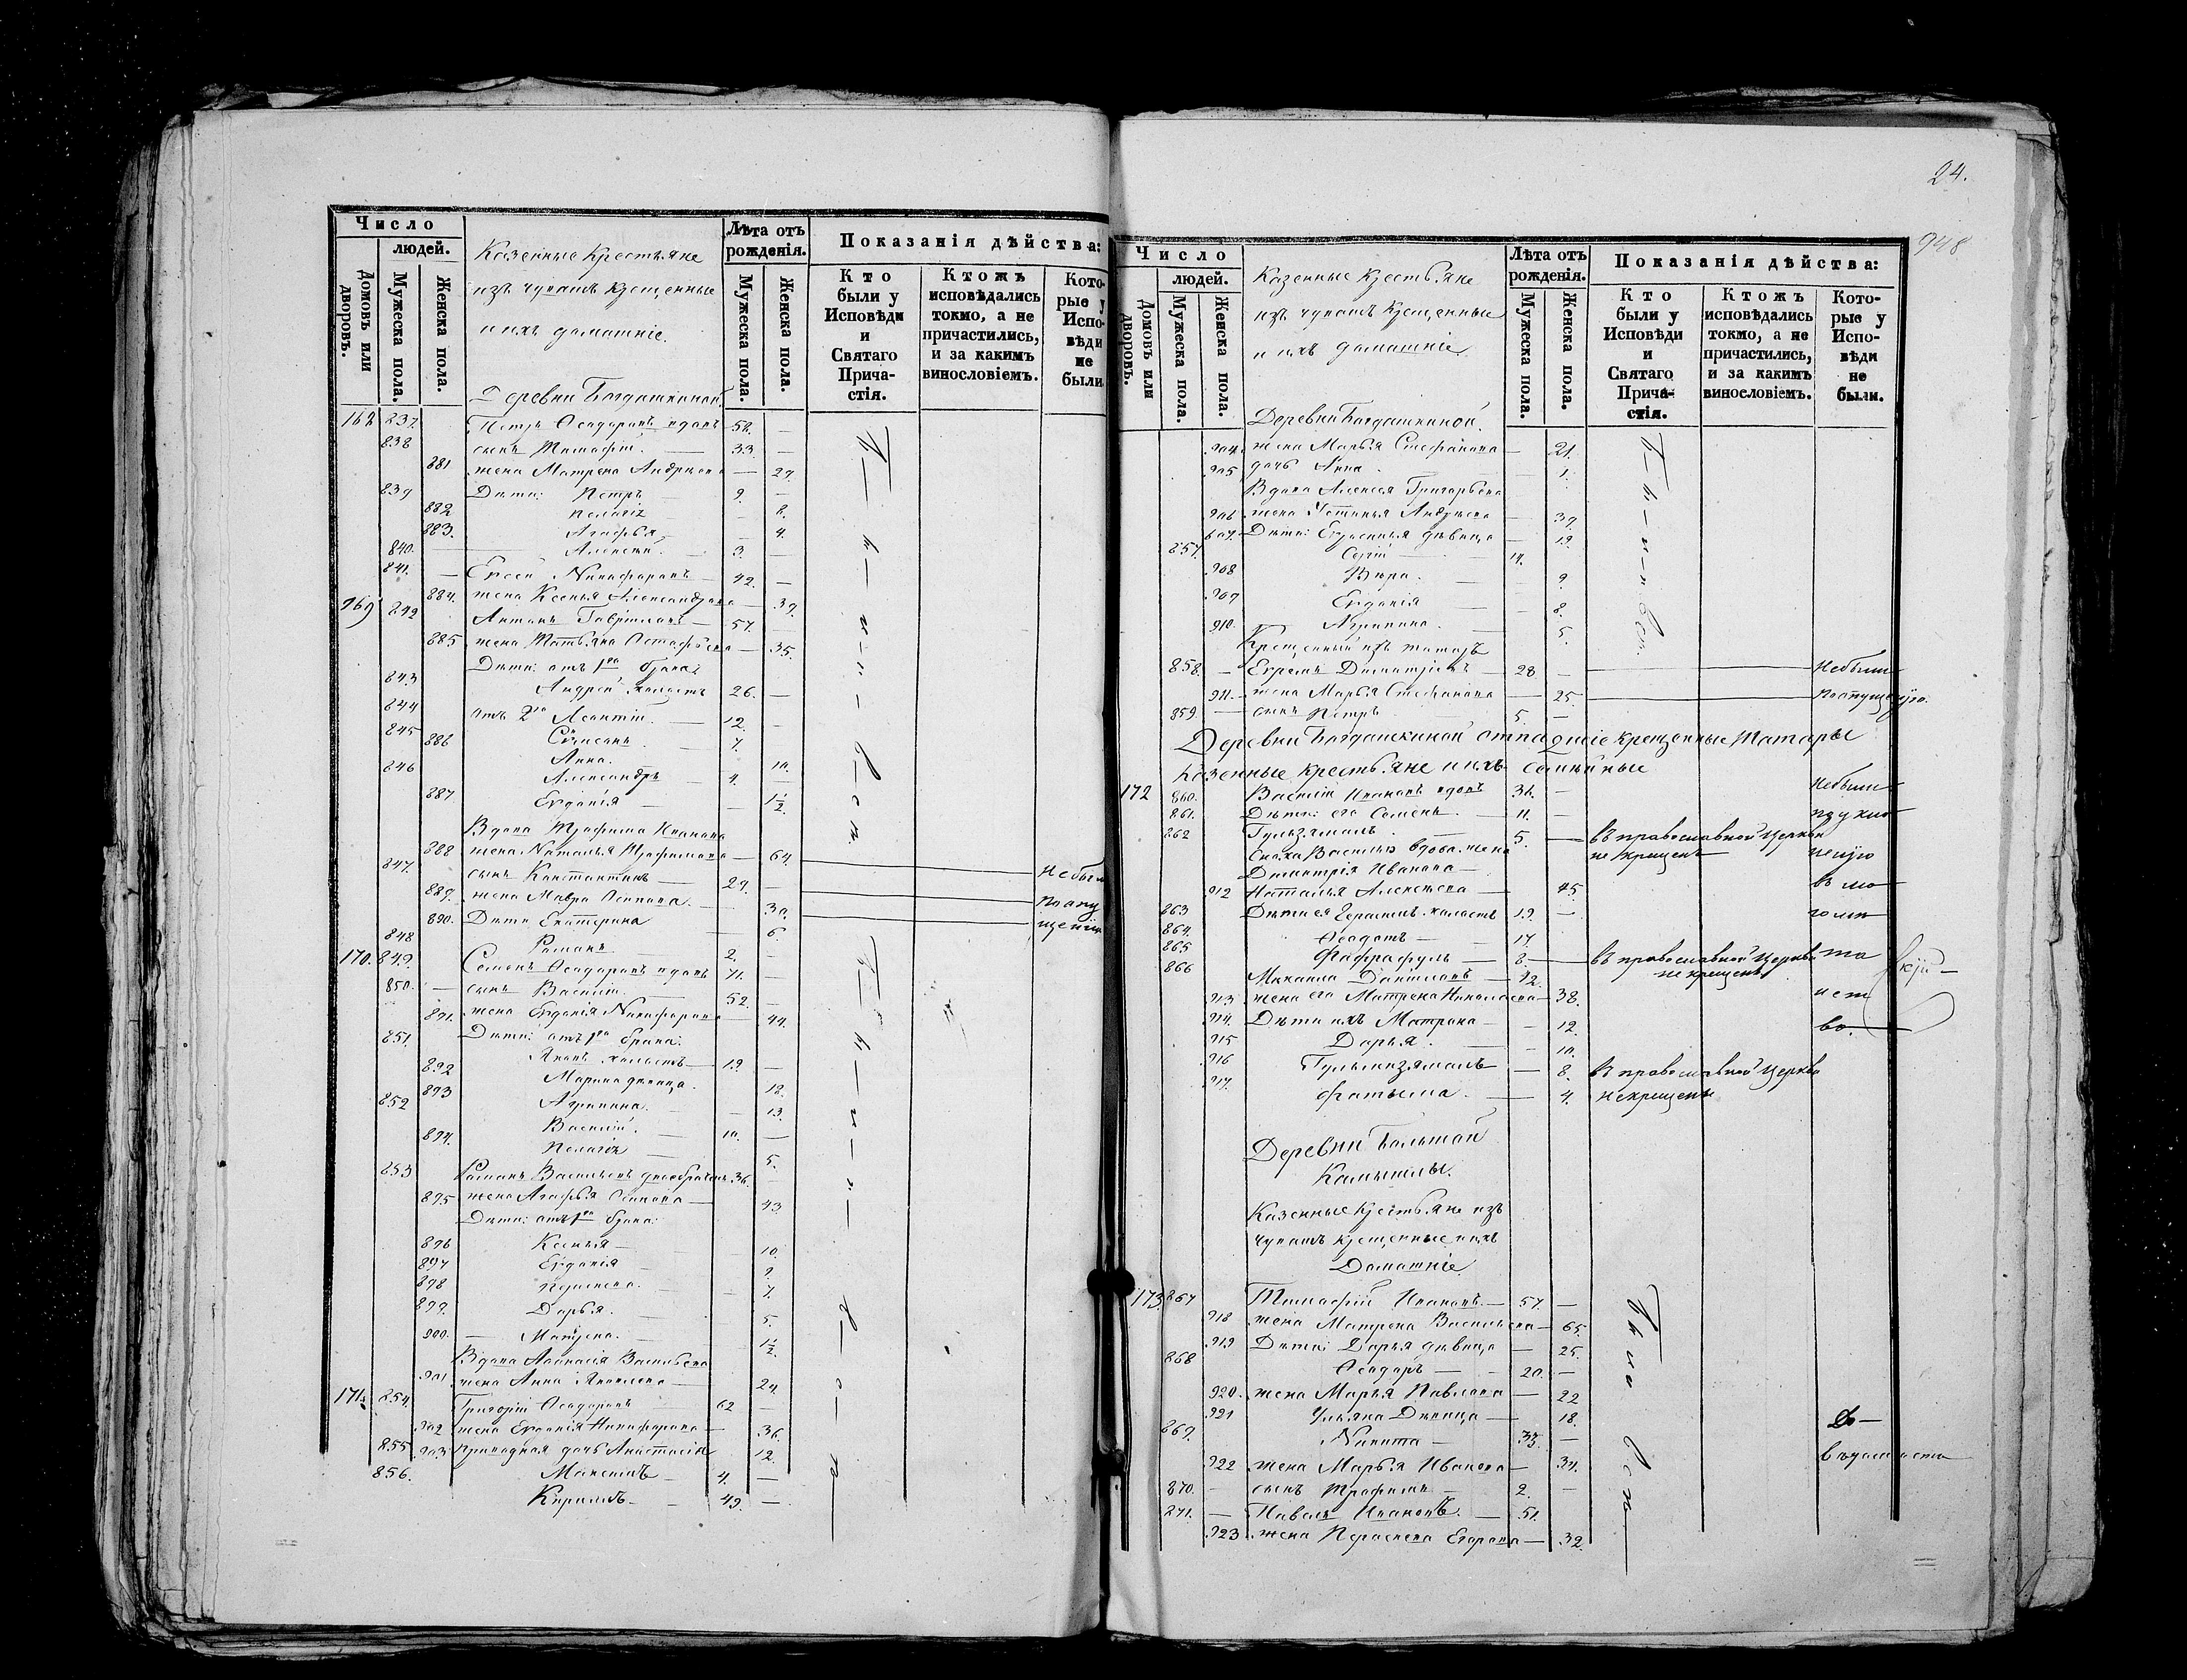 Число
людей.
Домовъ или дворовъ.
Мужеска пола.
Женска пола.
Казенные Крестьяне
изъ чувашъ крещенные
и ихъ домашніе.
Лѣта отъ рожденія.
Мужеска пола.
Женска пола.
Показанія дѣйства:
Кто были у Исповѣди и Святаго Причастія.
Ктожъ исповѣдались токмо, а не причастились, и за какимъ винословіемъ.
Которые у Исповѣди не были.
Деревни Богдашкиной.
Петръ Ѳеодоровъ вдовъ 58.
838 сынъ Тимофѣй 33.
881 жена Матрена Андреева 27.
839 Дѣти: Петръ 9.
882 Пелагія 8.
883. Агафья 4.
840. Алексѣй 3.
841. Елсей Никифоровъ 42.
884. жена Ксенья Александрова 39.
169 842 Антонъ Гаврииловъ 57.
885 жена Татьяна Остафьева 35.
Дѣти: отъ 1го брака:
843 Андрей холостъ 26.
844 отъ 2го Леонтій 12.
845 Симеонъ 7.
886 Анна. 10.
846 Александръ 4.
887 Евдокія 1½
Вдова Трофима Иванова
888 жена Наталья Трофимова 64.
847. сынъ Константинъ 29.
889. жена Мавра Осипова 30.
890. Дѣти Екатерина 6.
848 Романъ 2.
Не были
по опу
щенію
170. 849. Семенъ Ѳеодоровъ вдовъ 71.
850. сынъ Василій 52.
891. жена Евдокія Никифорова 44.
Дѣти: отъ 1го брака:
851. Яковъ холостъ 19.
892 Марина дѣвица. 18.
893 Агрипина. 13.
852 Василій. 10.
894. Пелагія 5.
853 Романъ Васильевъ двоебрачн. 36.
895 жена Агафья Осипова 43
Дѣти: отъ 1го брака:
896 Ксенья 10.
897 Евдокія 9.
898 Прасковья. 7.
899. Дарья. 5.
900. Матрена. 1½
Вдова Афанасія Васильева
901 жена Анна Яковлева 29.
171. 854. Григорій Ѳеодоровъ 62
902 жена Евдокія Никифорова 36.
903. приводная дочь Анастасія 12.
855 Максимъ 4.
856. Кириллъ 49.
24.
948
Число
людей.
Домовъ или дворовъ.
Мужеска пола.
Женска пола.
Казенные крестьяне
изъ чувашъ крещенные
и ихъ домашніе.
Лѣта отъ рожденія.
Мужеска пола.
Женска пола.
Показанія дѣйства:
Кто были у Исповѣди и Святаго Причастія.
Ктожъ исповѣдались токмо, а не причастились, и за какимъ винословіемъ.
Которые у Исповѣди не были.
Деревни Богдашкиной.
904. жена Марья Стефанова 21.
905 дочь Анна 1.
Вдова Алексея Григорьева
906 жена Устинья Андреева 39.
907. Дѣти: Ефросинья дѣвица 19.
857. Сергій 14.
908 Вѣра. 9
909 Евдокія 8.
910. Агрипина. 5.
Крещенный изъ татаръ
858. Ефремъ Димитріевъ 28
911. жена Марья Стефанова 25.
859. сынъ Петръ 5.
Не были
по опущенію.
Деревни Богдашкиной отпадшіе крещенные Татары
Казенные крестьяне и ихъ семейные
172 860. Василій Ивановъ вдовъ 36.
861. Дѣти: его Семенъ. 11.
862 Гульзямалъ 5. въ православной церкви
не крещенъ
Сноха Василья вдова жена
Димитрія Иванова
912 Наталья Алексѣева 45.
863 Дѣти ея Герасимъ холостъ 19.
864. Ѳеодотъ 17.
865 8. въ православной церкви
не крещенъ
866 Михаила Даніиловъ 42.
913. жена его Матрена Николаева 38.
914. Дѣти ихъ Матрона 12.
915 Дарья. 10.
916 8. въ православной церкви
917. Фатыма. 4. не крещены
Не были
Деревни Большой
Камышлы.
Казенные крестьяне изъ
чувашъ крещенные и ихъ
Домашніе
173. 867 Тимофѣй Ивановъ. 57.
918 жена Матрена Васильева 65.
919 Дѣти: Дарья дѣвица 25.
868 Ѳеодоръ 20.
920. жена Марья Павлова 22
921 Ульяна Дѣвица 18.
869. Никита 33.
922 жена Марья Иванова 34.
870. сынъ Трофимъ 2.
871. Павелъ Ивановъ. 51.
923. жена Прасковья Егорова 32.